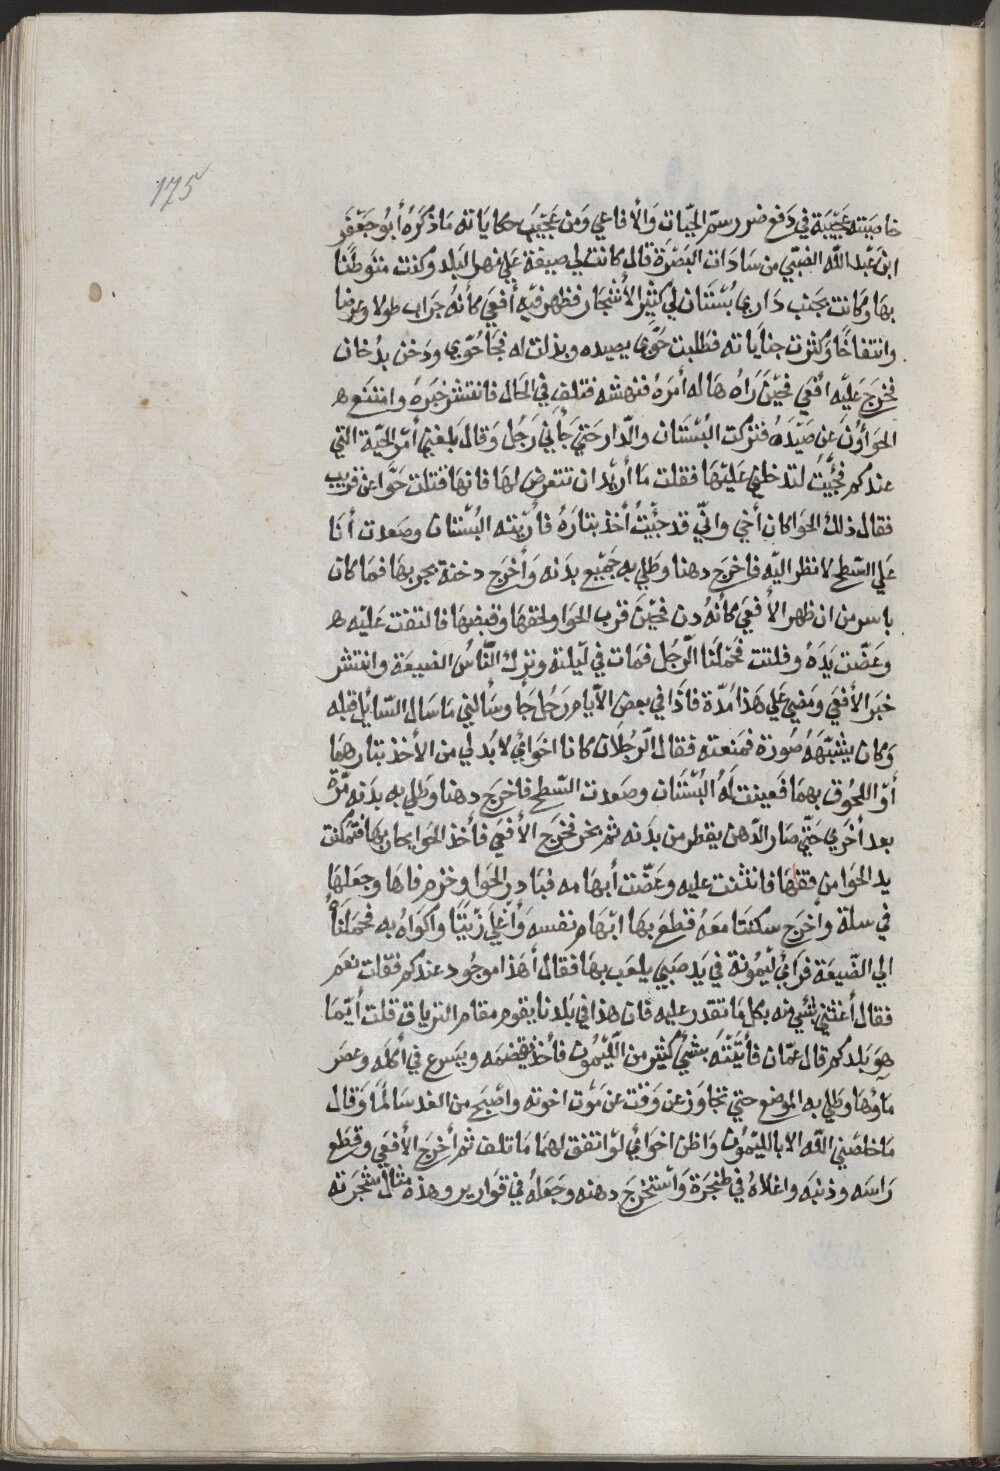 175
خاصيته عجيبة في دفع ضرر سم الحيات والأفاعي ومن عجيب حكاياته ما ذكره أبو جعفر
ابن عبد الله الضبي من سادات البصرة قال كانت لي ضيعة علي نهر البلد وكنت متوطنا
بها وكانت بجنب داري بستان لي كثير الأشجار فظهر فيه أفعي كأنه جراب طولا وعرضا
وانتفاخا وكثرت جناياته فطلبت حوي يصيده وبذلت له فجا حوي ودخن بدخان
فخرج عليه افعي فحين راه هاله أمره فنهشه فتلف في الحال فانتشر خبره وامتنع
الحواؤن عن صيده فتركت البستان والدار حتي جأني رجل وقال بلغني أمر الحية التي
عندكم فجيت لتدخلني عليها فقلت ما أريد ان تتعرض لها فانها قتلت حوا عن قريب
فقال ذلك الحوا كان أخي واني قد جئيت أخذ بتاره فأريته البستان وصعدت أنا
علي السطح لانظر اليه فاخرج دهنا وطلي به جميع بدنه وأخرج دخنة بخر بها فما كان
باسرمن ان ظهر الأفعي كأنه دن فحين قرب الحوا ولحقها وقبضها فالتفت عليه
وعضت يده وفلتت فحملنا الرجل فمات في ليلته وترك الناس الضيعة وانتشر
خبر الأفعي ومضي علي هذا مدة فاذا في بعض الأيام رجل جأ وسألني ما سال السائل قبله
وكان يشبهه صورة فمنعته فقال الرجلان كانا اخواني لا بد لي من الأخذ بتارهما
أو اللحوق بهما فعينت له البستان وصعدت السطح فاخرج دهنا وطلي به بدنه مرة
بعد أخري حتي صار الدهن يقطر من بدنه ثم بخر فخرج الأفعي فأخذ الحوا يحاربها فتمكنت
يد الحوا من قفها فانثنت عليه وعضت أبهامه فبادر الحوا وخزم فاها وجعلها
في سلة وأخرج سكنتا معه قطع بها ابهام نفسه وأغلي زيتا واكواه به فحملناه
الي الضيعة فرأي ليمونة في يد صبي يلعب بها فقال أهذا موجود عندكم فقلت نعم
فقال أغثني بشي منه بكل ما تقدر عليه فان هذا في بلدنا يقوم مقام الترياق قلت أيما
هو بلدكم قال عمان فأتيته بشي كثير من الليمون فأخذ يقضمه ويسرع في أكله وعصر
ماؤها وطلي به الموضع حتي تجاوز عن وقت عن موت اخوته واصبح من الغد سالما وقال
ما خلصني الله الا بالليمون واظن اخواني لو اتفق لهما ما تلف ثم أخرج الأفعي وقطع
راسه وذنبه واغلاه في طنجرة واستخرج دهنه وجعله في قوارير وهذه مثال شجرته